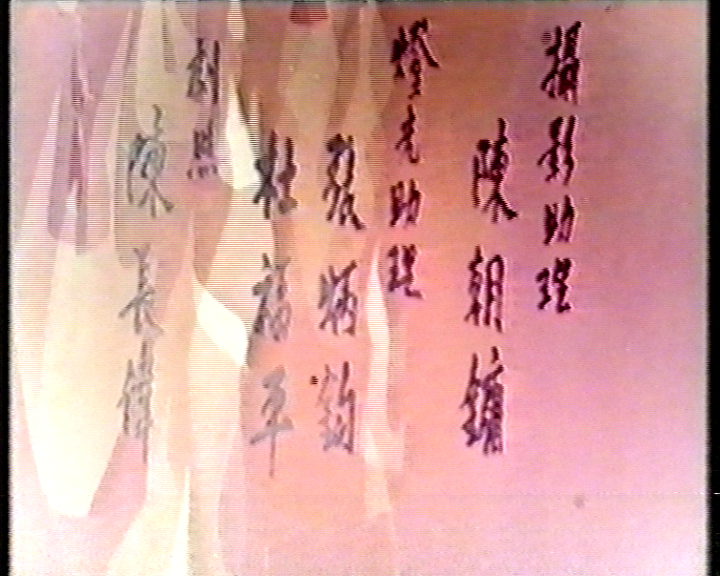 攝影助理
陳朝鏞
燈光助理
張炳鈞
杜福平
劇照
陳長偉